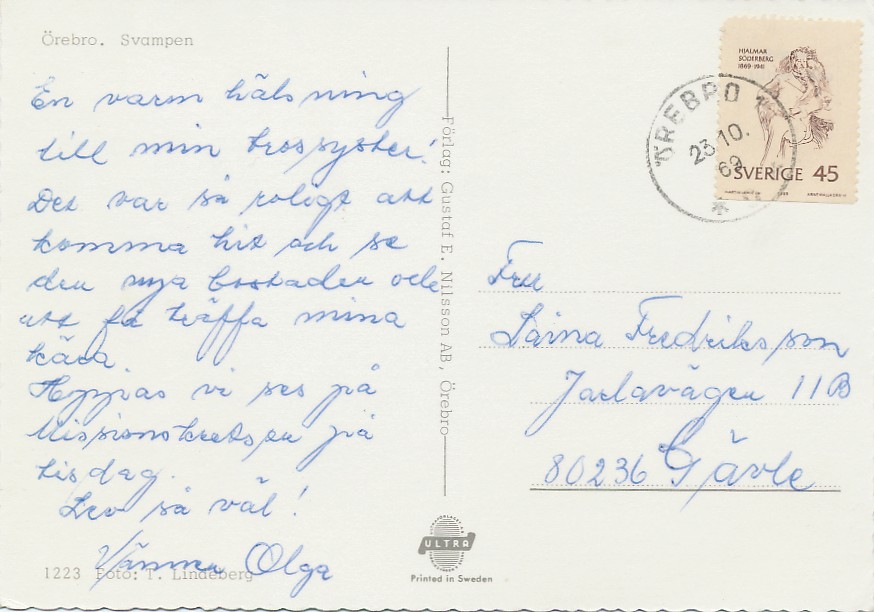 Örebro. Svampen
En varm hälsning
till min trossyster!
Det var så roligt att
komma hit och se
den nya bostaden och
att få träffa mina
kära.
Hoppas vi ses på
Missionskretsen på
tisdag.
Lev så väl!
Vännen Olga
1223 Foto: T. Lindeberg
Förlag: Gustaf E. Nilsson AB, Örebro
ULTRA
Printed in Sweden
HJALMAR
SÖDERBERG
1869-1941
SVERIGE 45
ÖREBRO 1
23.10.
69
Fru
Laina Fredriksson
Jarlavägen 11B
80236 Gävle